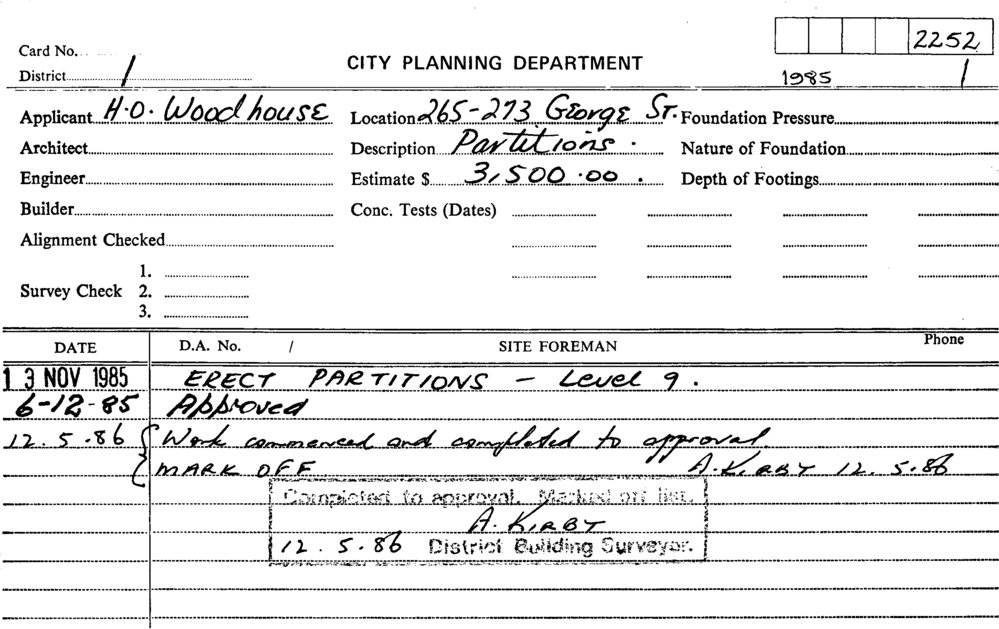 2252
Card No.
CITY PLANNING DEPARTMENT
District 1
1985 1
Applicant H.O. Woodhouse Location 265-273 George St. Foundation Pressure
Architect Description Partitions. Nature of Foundation
Engineer Estimate $ 3,500.00. Depth of Footings
Builder Conc. Tests (Dates)
Alignment Checked
1.
Survey Check 2.
3.
DATE D.A. No. / SITE FOREMAN Phone
13 NOV 1985 ERECT PARTITIONS - Level 9.
6-12-85 Approved
12.5.86 Work commenced and completed to approval
MARK OFF A. KIRBY 12.5.86
Completed to approval. Marked off list.
A. KIRBY
12.5.86 District Building Surveyor.